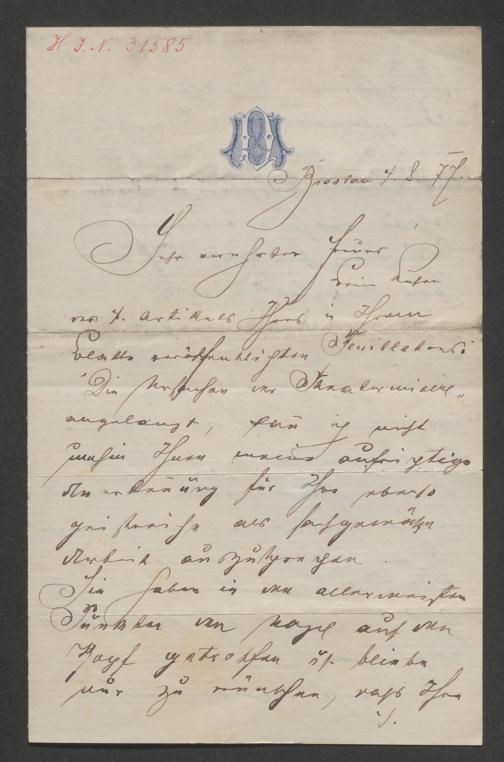 H. I. N. 31585
Breslau 4. 8. 77.
Sehr verehrter Freund!
Beim Lesen
des 4. Artikels Ihres in Ihrem
Blatte veröffentlichten Feuilletons:
"Die Ursachen der Theatermisere"
angelangt, kan̄ ich nicht
umhin Ihnen meine aufrichtige
Anerken̄ung für Ihre ebenso
geistreiche als sachgemäße
Arbeit auszusprechen.
Sie haben in den allermeisten
Punkten den Nagel auf den
Kopf getroffen u. es bliebe
nur zu wünschen, daß Ihre